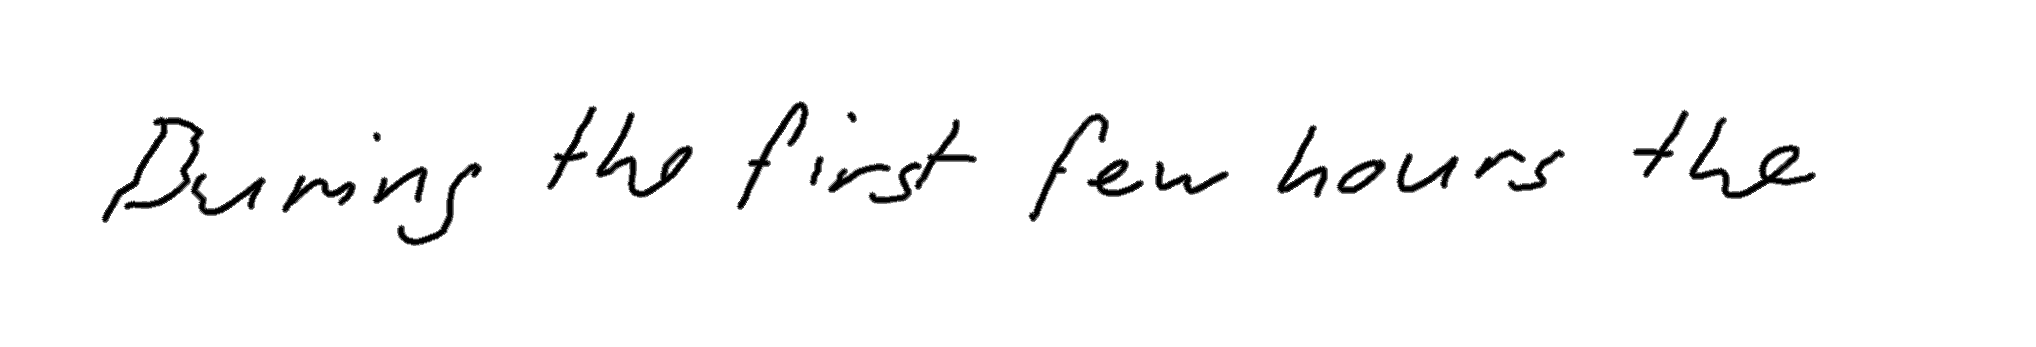 During the first few hours the